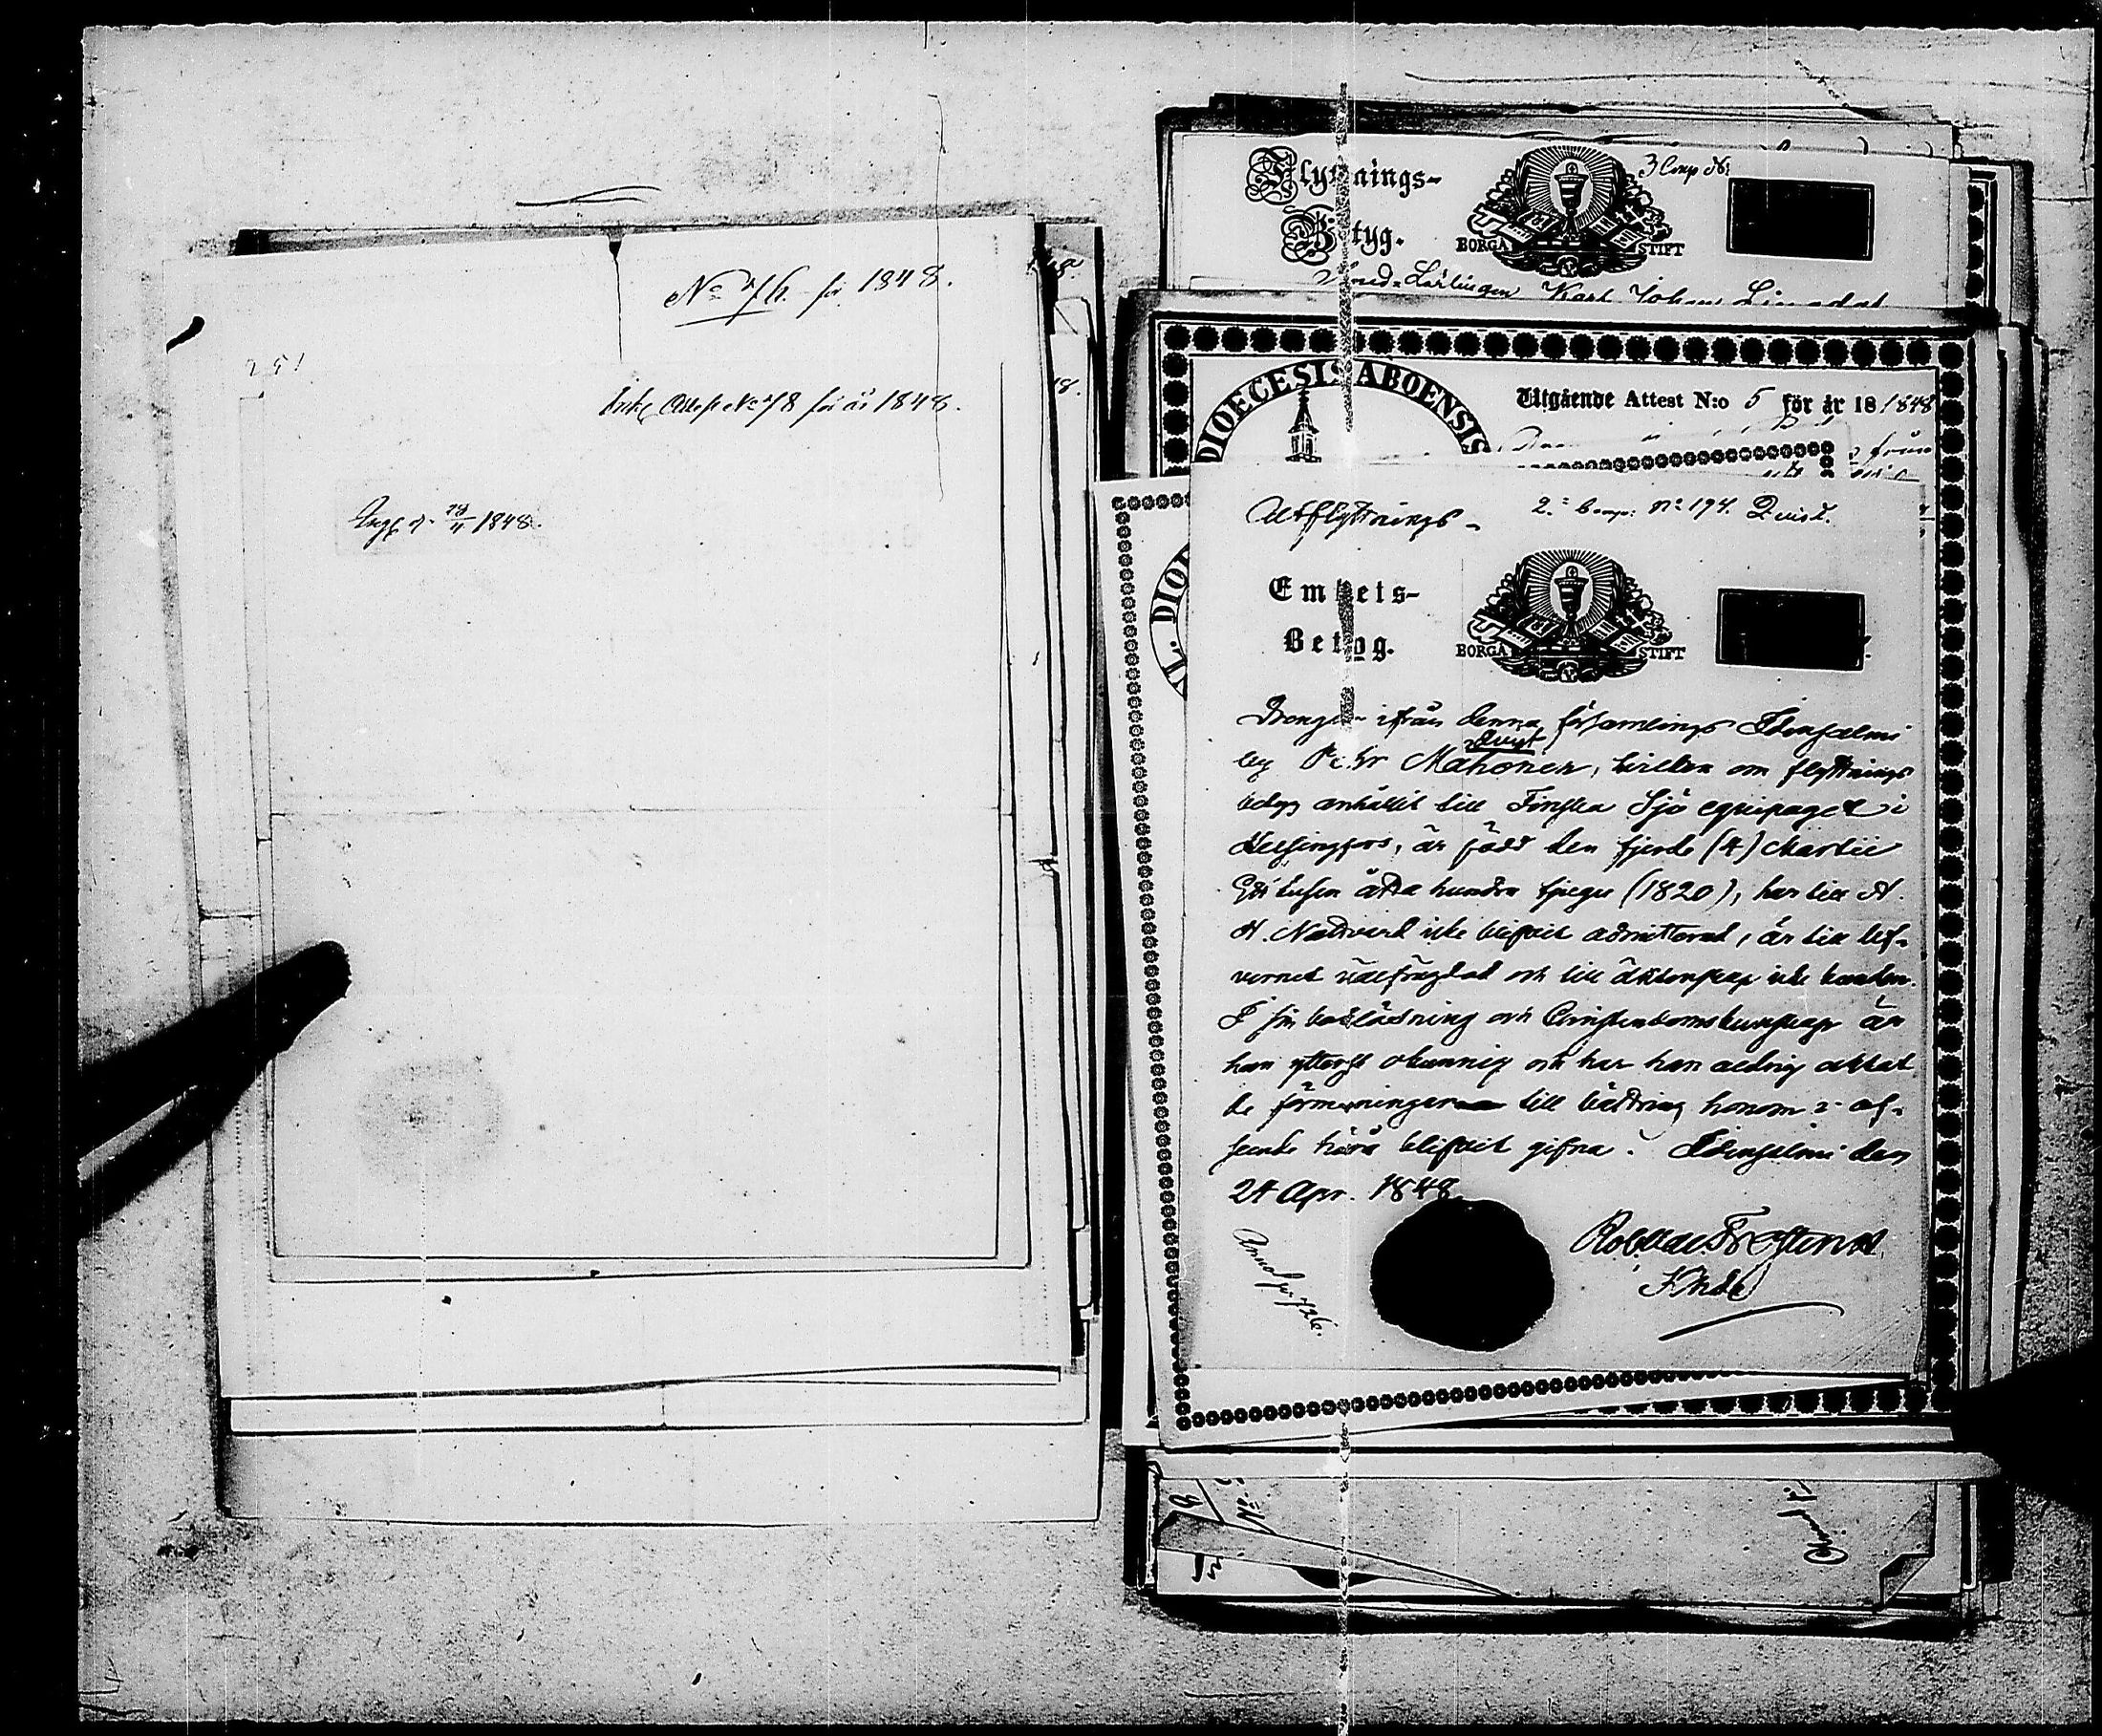 No 76. för 1848.
251
Attest No 78 för år 1848.
18/11 1848.
Flyttnings-
Betyg.
BORGÅ STIFT
3 Comp No
Lärlingen Karl Johan
DIOECESIS ABOENSIS
Utgående Attest N:o 5 för år 18 1848
från
Utflyttnings-
2:a Comp: No 194. Qvist.
Embets-
Betyg.
BORGÅ STIFT
Drengen ifrån denna församlings Idensalmi
Qvist
by Petr Mahonen, hvilken om flyttnings
betyg anhållit till Finska Sjö equipaget i
Helsingfors, är född den fjerde (4) Martii
Ett tusen åtta hundra tjugu (1820), har till H.
H. Nattvard icke blifvit admitterad, är till lef-
vernet välfrägdad och till äktenskap icke bunden.
I sin bokläsning och Christendomskunskap är
han ytterst okunnig och har han aldrig aktat
de förmaningar till bättring honom i af-
seende härå blifvit gifna. Idensalmi den
24 Apr. 1848.